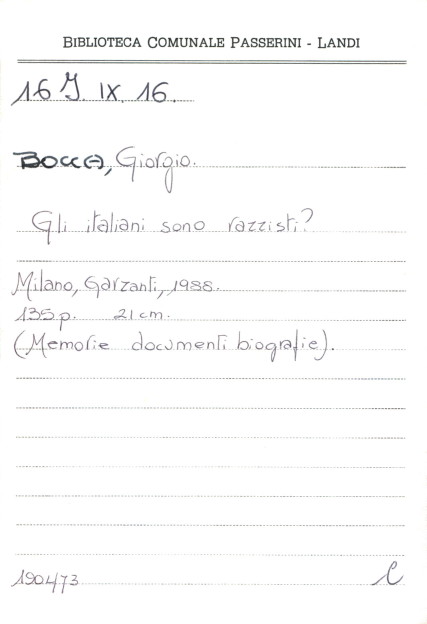 BIBLIOTECA COMUNALE PASSERINI - LANDI
16 J IX. 16.
BOCCA, Giorgio.
Gli italiani sono razzisti?
Milano, Garzanti, 1988.
135 p. 21 cm.
(Memorie documenti biografie).
190473 C